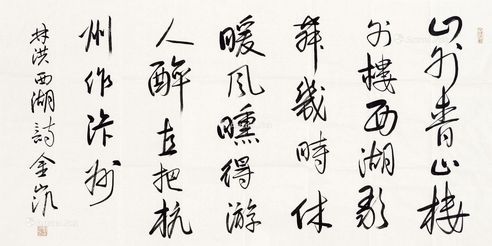 山外青山樓
外樓西湖歌
舞幾時休
暖風曛得游
人醉直把杭
州作汴州
林洪西湖詩金